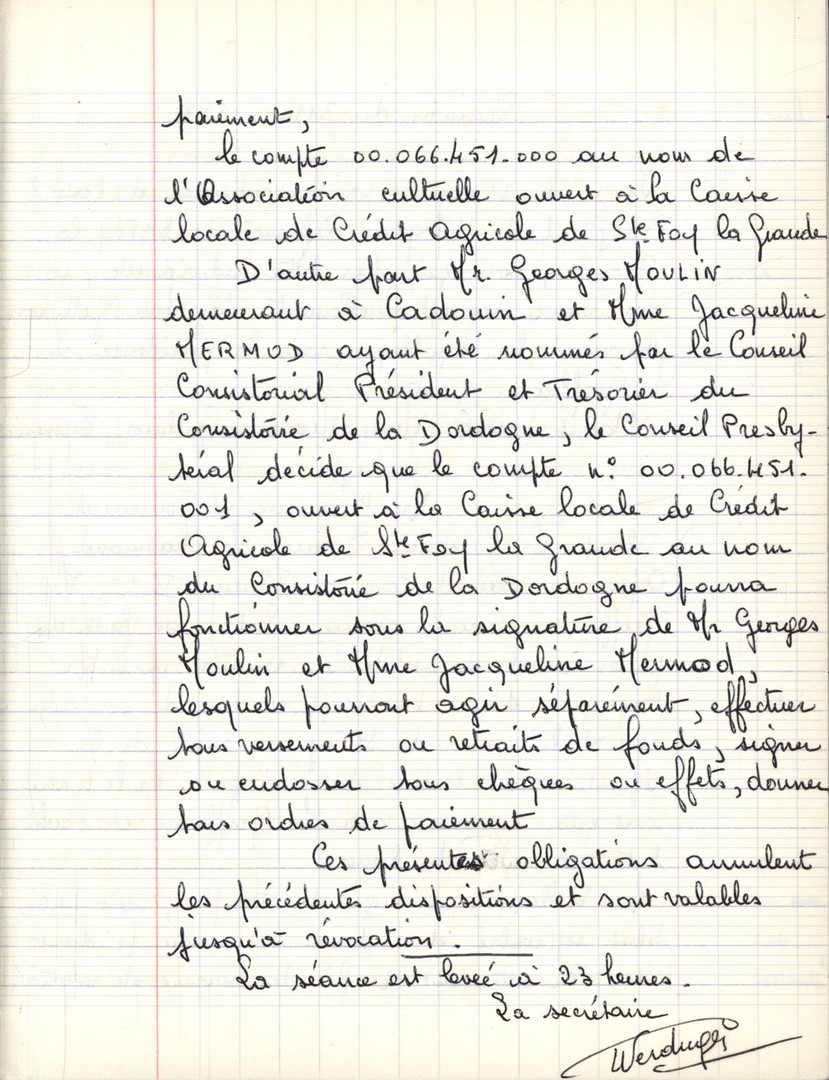 paiement,
le compte 00.066.451.000 au nom de
l'Association cultuelle ouvert à la Caisse
locale de Crédit Agricole de Ste Foy la Grande
D'autre part Mr. Georges MOULIN
demeurant à Cadouin et Mme Jacqueline
MERMOD ayant été nommés par le Conseil
Consistorial Président et Trésorier du
Consistoire de la Dordogne, le Conseil Presby-
téral décide que le compte n° 00.066.451.
001, ouvert à la Caisse locale de Crédit
Agricole de Ste Foy la Grande au nom
du Consistoire de la Dordogne pourra
fonctionner sous la signature de Mr Georges
Moulin et Mme Jacqueline Mermod,
lesquels pourront agir séparément, effectuer
tous versements ou retraits de fonds, signer
ou endosser tous chèques ou effets, donner
tous ordres de paiement
Ces présentes obligations annulent
les précédentes dispositions et sont valables
jusqu'à révocation.
La séance est levée à 23 heures.
La secrétaire